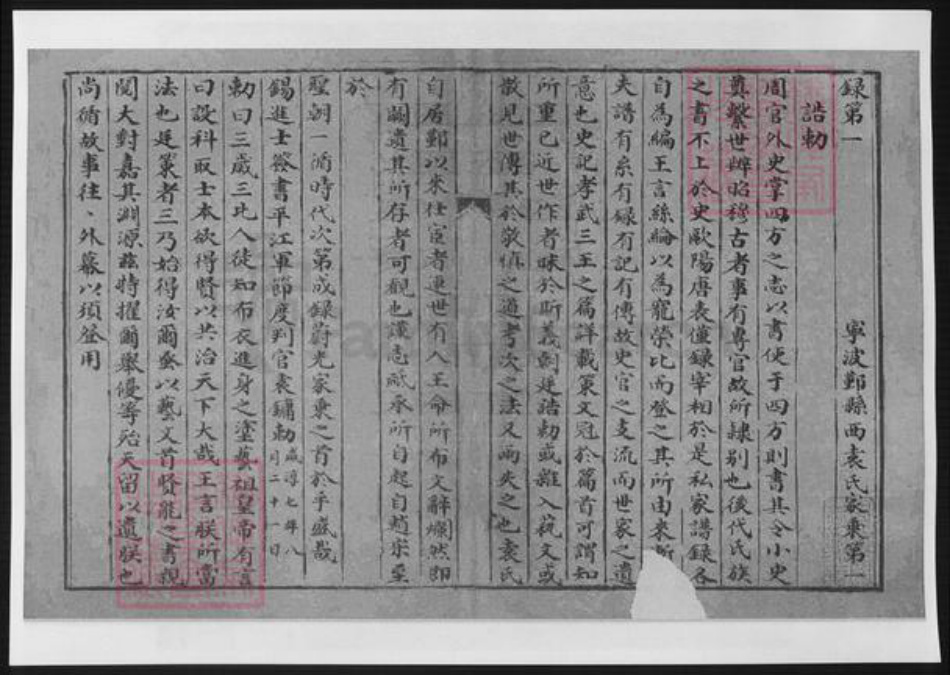 錄第一 寧波鄞縣西袁氏家乘第一
誥勅
周官外史掌四方之志以書使于四方則書其令小史
奠繫世辨昭穆古者事有專官故所隸别也後代氏族
之書不上於史歐陽唐表僅錄宰相於是私家譜錄各
自為編王言絲綸以為寵榮比而登之其所由來
夫譜有系有録有記有傳故史官之支流而世家之遺
意也史記孝武三王之篇詳載策文冠於篇首可謂知
所重已近世作者昧於斯義制廷誥勅或雜入藝文或
散見世傳其於敬慎之道考次之法又兩失之也袁氏
自居鄞以來仕宦者連世有人王命所布文辭爛然即
有闕遺其所存者可觀也謹志祗承所自起自趙宋至
於
聖朝一循時代次第成錄蔚光家乘之首於乎盛哉
錫進士簽書平江軍節度判官袁鏞勅 咸淳七年八月二十一日
勅曰三歲三比人徒知布衣進身之塗藝祖皇帝有言
曰設科取士本欲得賢以共治天下大哉王言朕所當
法也廷策者三乃始得汝爾垂以藝文首賢能之書親
閱大對嘉其淵源兹特擢爾舉優等殆天留以遺朕也
尚循故事往丶外幕以須登用